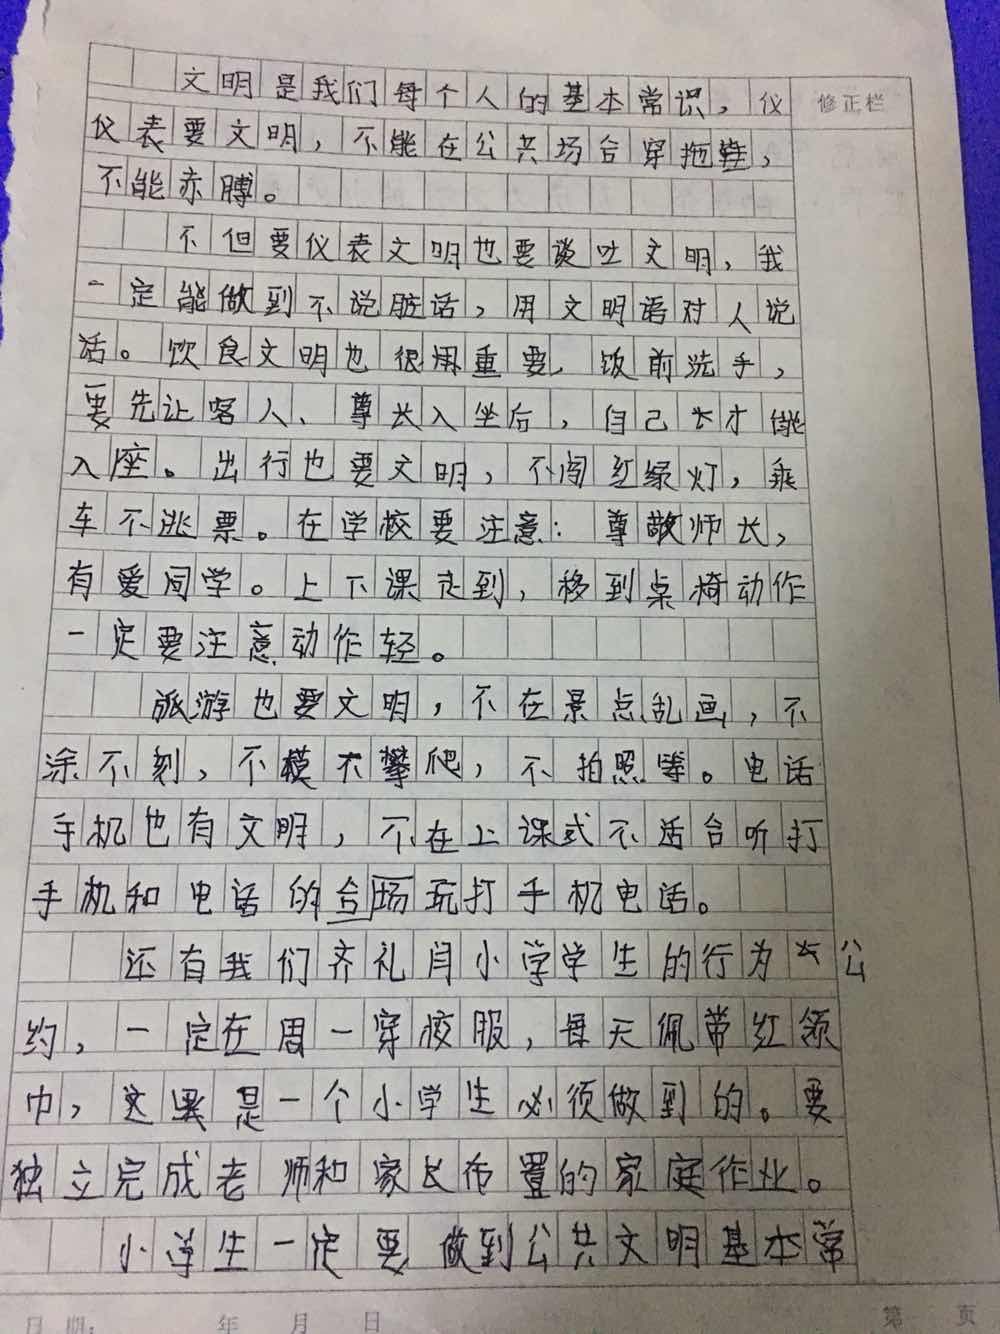 文明是我们每个人的基本常识，仪
修正栏
仪表要文明，不能在公共场合穿拖鞋，
不能赤膊。
不但要仪表文明也要谈吐文明，我
一定能做到不说脏话，用文明语对人说
话。饮食文明也很用重要，饭前洗手，
要先让客人、尊长入坐后，自己才能
入座。出行也要文明，不闯红绿灯，乘
车不逃票。在学校要注意：尊敬师长，
有爱同学。上下课走到，移到桌椅动作
一定要注意动作轻。
旅游也要文明，不在景点乱画，不
涂不刻，不模不攀爬，不拍照等。电话
手机也有文明，不在上课式不适合听打
手机和电话的合场玩打手机电话。
还有我们齐礼闫小学学生的行为公
约，一定在周一穿校服，每天佩带红领
巾，这是一个小学生必须做到的。要
独立完成老师和家长布置的家庭作业。
小学生一定要做到公共文明基本常
日期： 年 月 日
第 页